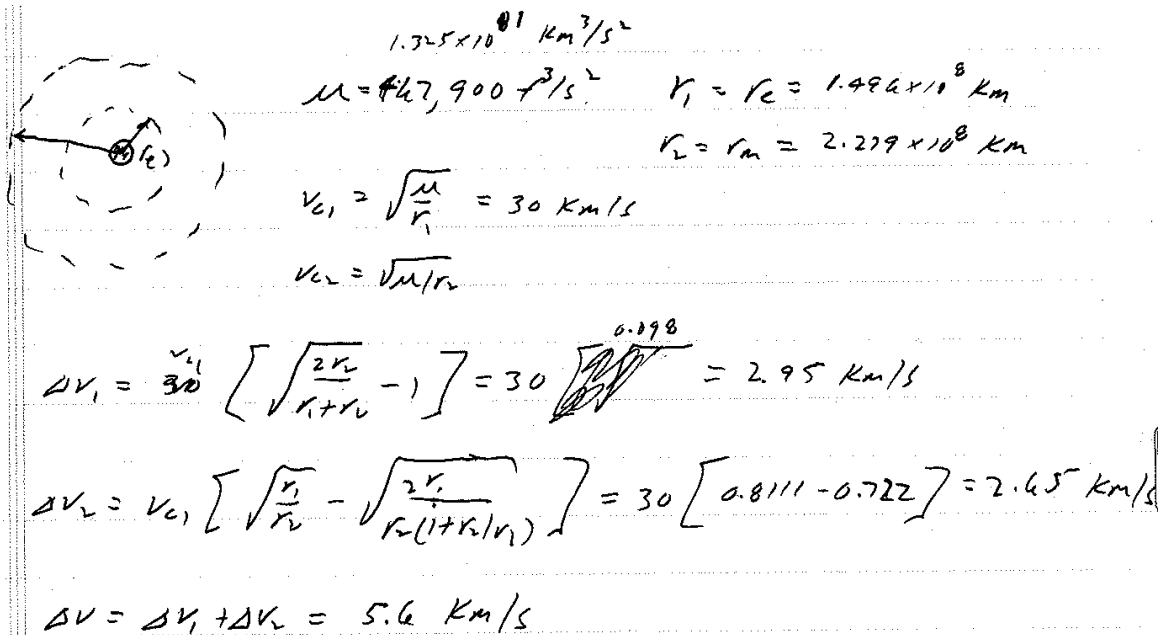 1.325×10¹¹ Km³/s²
μ = 467,900 f³/s² r₁ = r_e = 1.496×10⁸ Km
r₂ = r_m = 2.279×10⁸ Km
(r_e)
V_c₁ = √(μ/r₁) = 30 Km/s
V_c₂ = √(μ/r₂)
0.098
ΔV₁ = V_c₁ [√(2r₂/(r₁+r₂)) - 1] = 30 [ = 2.95 Km/s
ΔV₂ = V_c₁ [√(r₁/r₂) - √(2r₁/(r₂(1+r₂/r₁)))] = 30 [0.8111 - 0.722] = 2.65 Km/s
ΔV = ΔV₁ + ΔV₂ = 5.6 Km/s